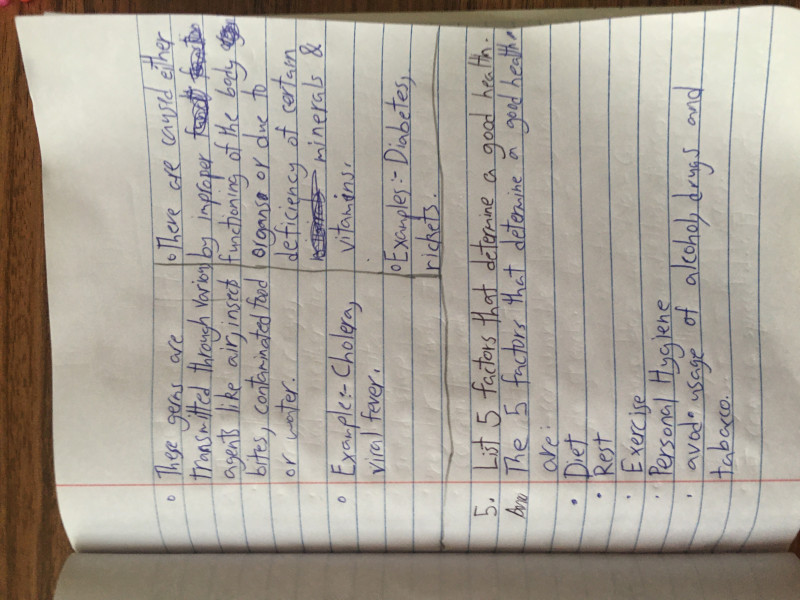 ◦ These germs are
transmitted through various
agents like air, insect
bites, contaminated food
or water.
◦ Example:- Cholera,
viral fever.
◦ There are caused either
by improper
functioning of the body
organs or due to
deficiency of certain
minerals &
vitamins.
◦ Examples:- Diabetes,
rickets.
5. List 5 factors that determine a good health.
The 5 factors that determine a good health
are:
• Diet
• Rest
• Exercise
• Personal Hygiene
• avod usage of alcohol, drugs and
tabacco.